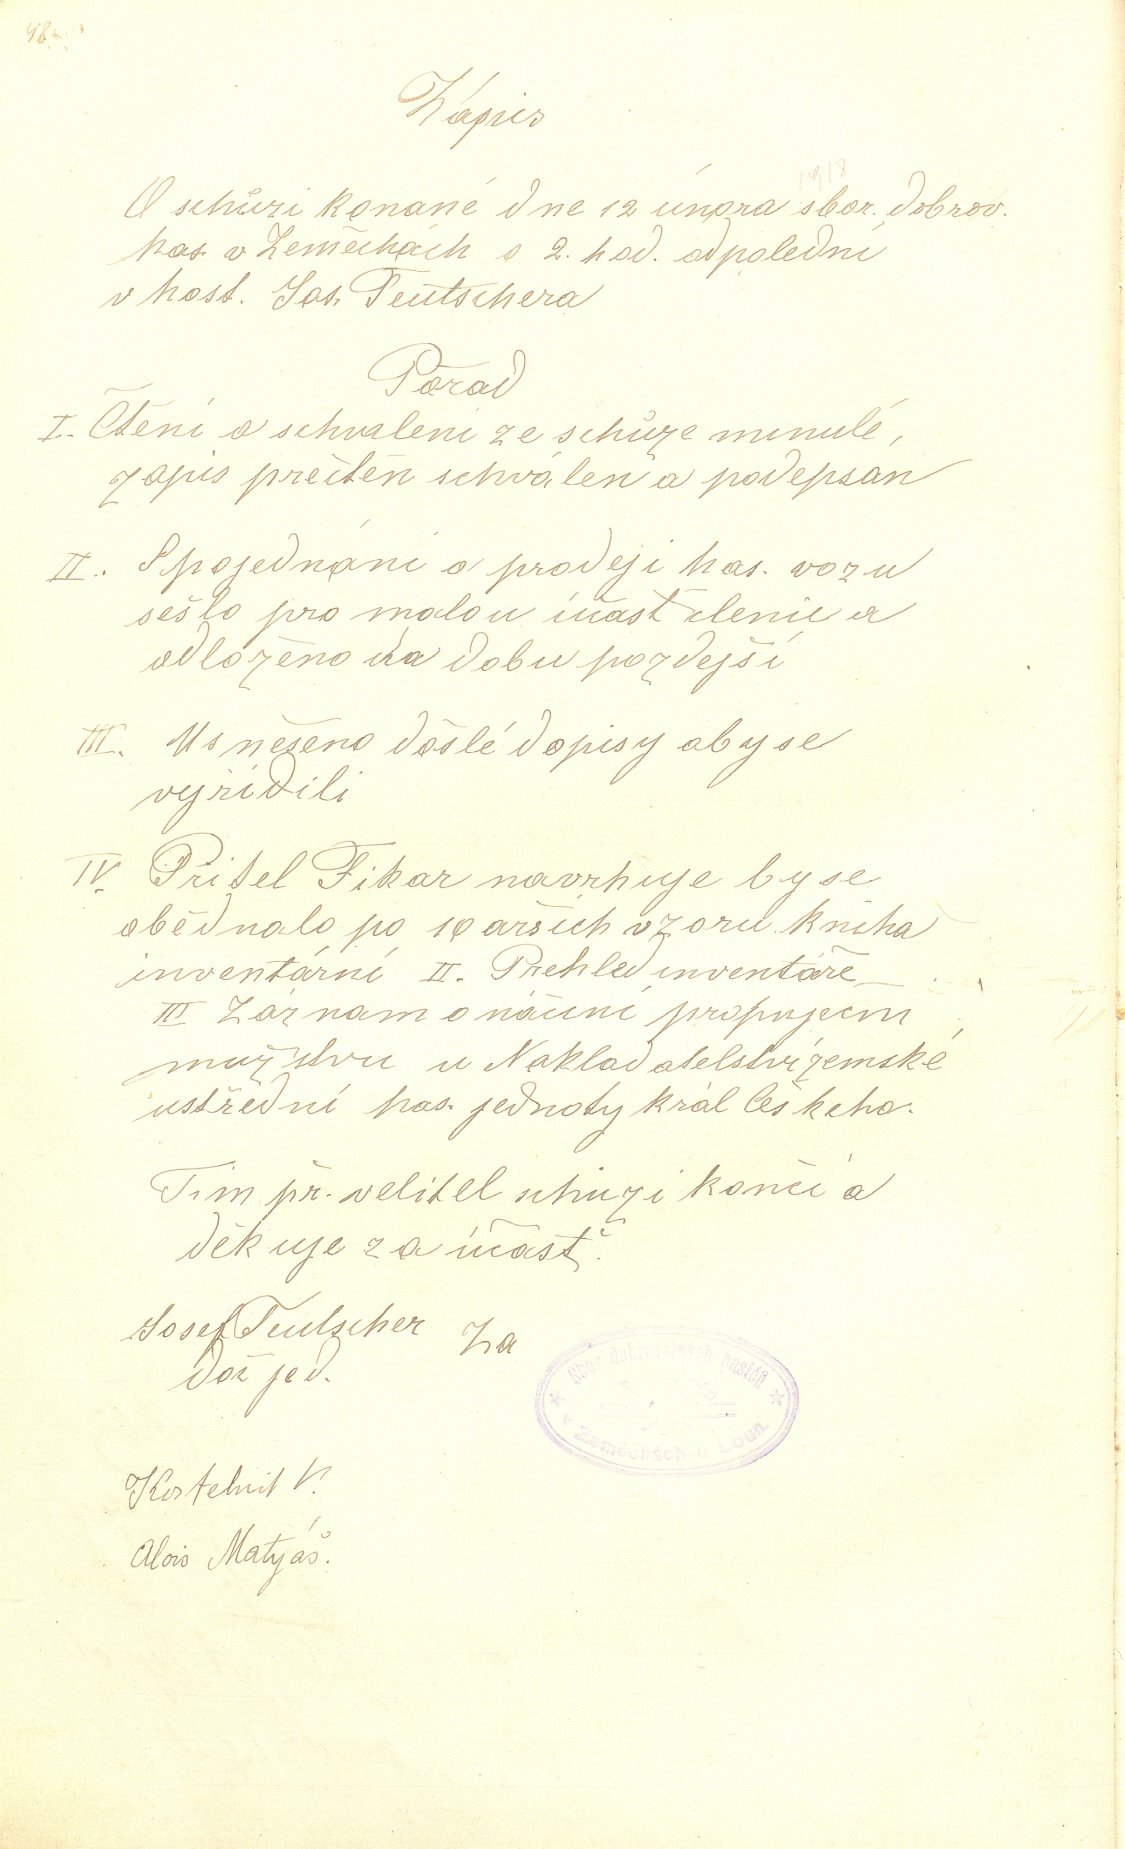 48
Zápis
1918
O schůzi konané dne 12 února sbor. dobrov.
has. v Zeměchách o 2. hod. odpolední
v host. Jos. Teutschera
Pořad
I. Čtení a schvalení ze schůze minulé,
zapis přečten schválen a podepsan
II. Spojednání o prodeji has. vozu
sešlo pro malou účast členu a
odloženo na dobu pozdejší
III. Usnešeno došlé dopisy aby se
vyřidili
IV. Přitel Fikar navrhuje by se
obědnalo po 10 aršich vzoru kniha
inventární II. Přehled inventáře
III Záznam o náčiní propujcem
mužstvu u Nakladatelství zemské
ustřední has. jednoty král Českeho.
Tim př. velitel schuzi končí a
děkuje za účasť.
Josef Teutscher Za
doz jed.
Sbor dobrovolných hasičů
v Zeměchách u Loun.
Kostelnit V.
Alois Matyáš.